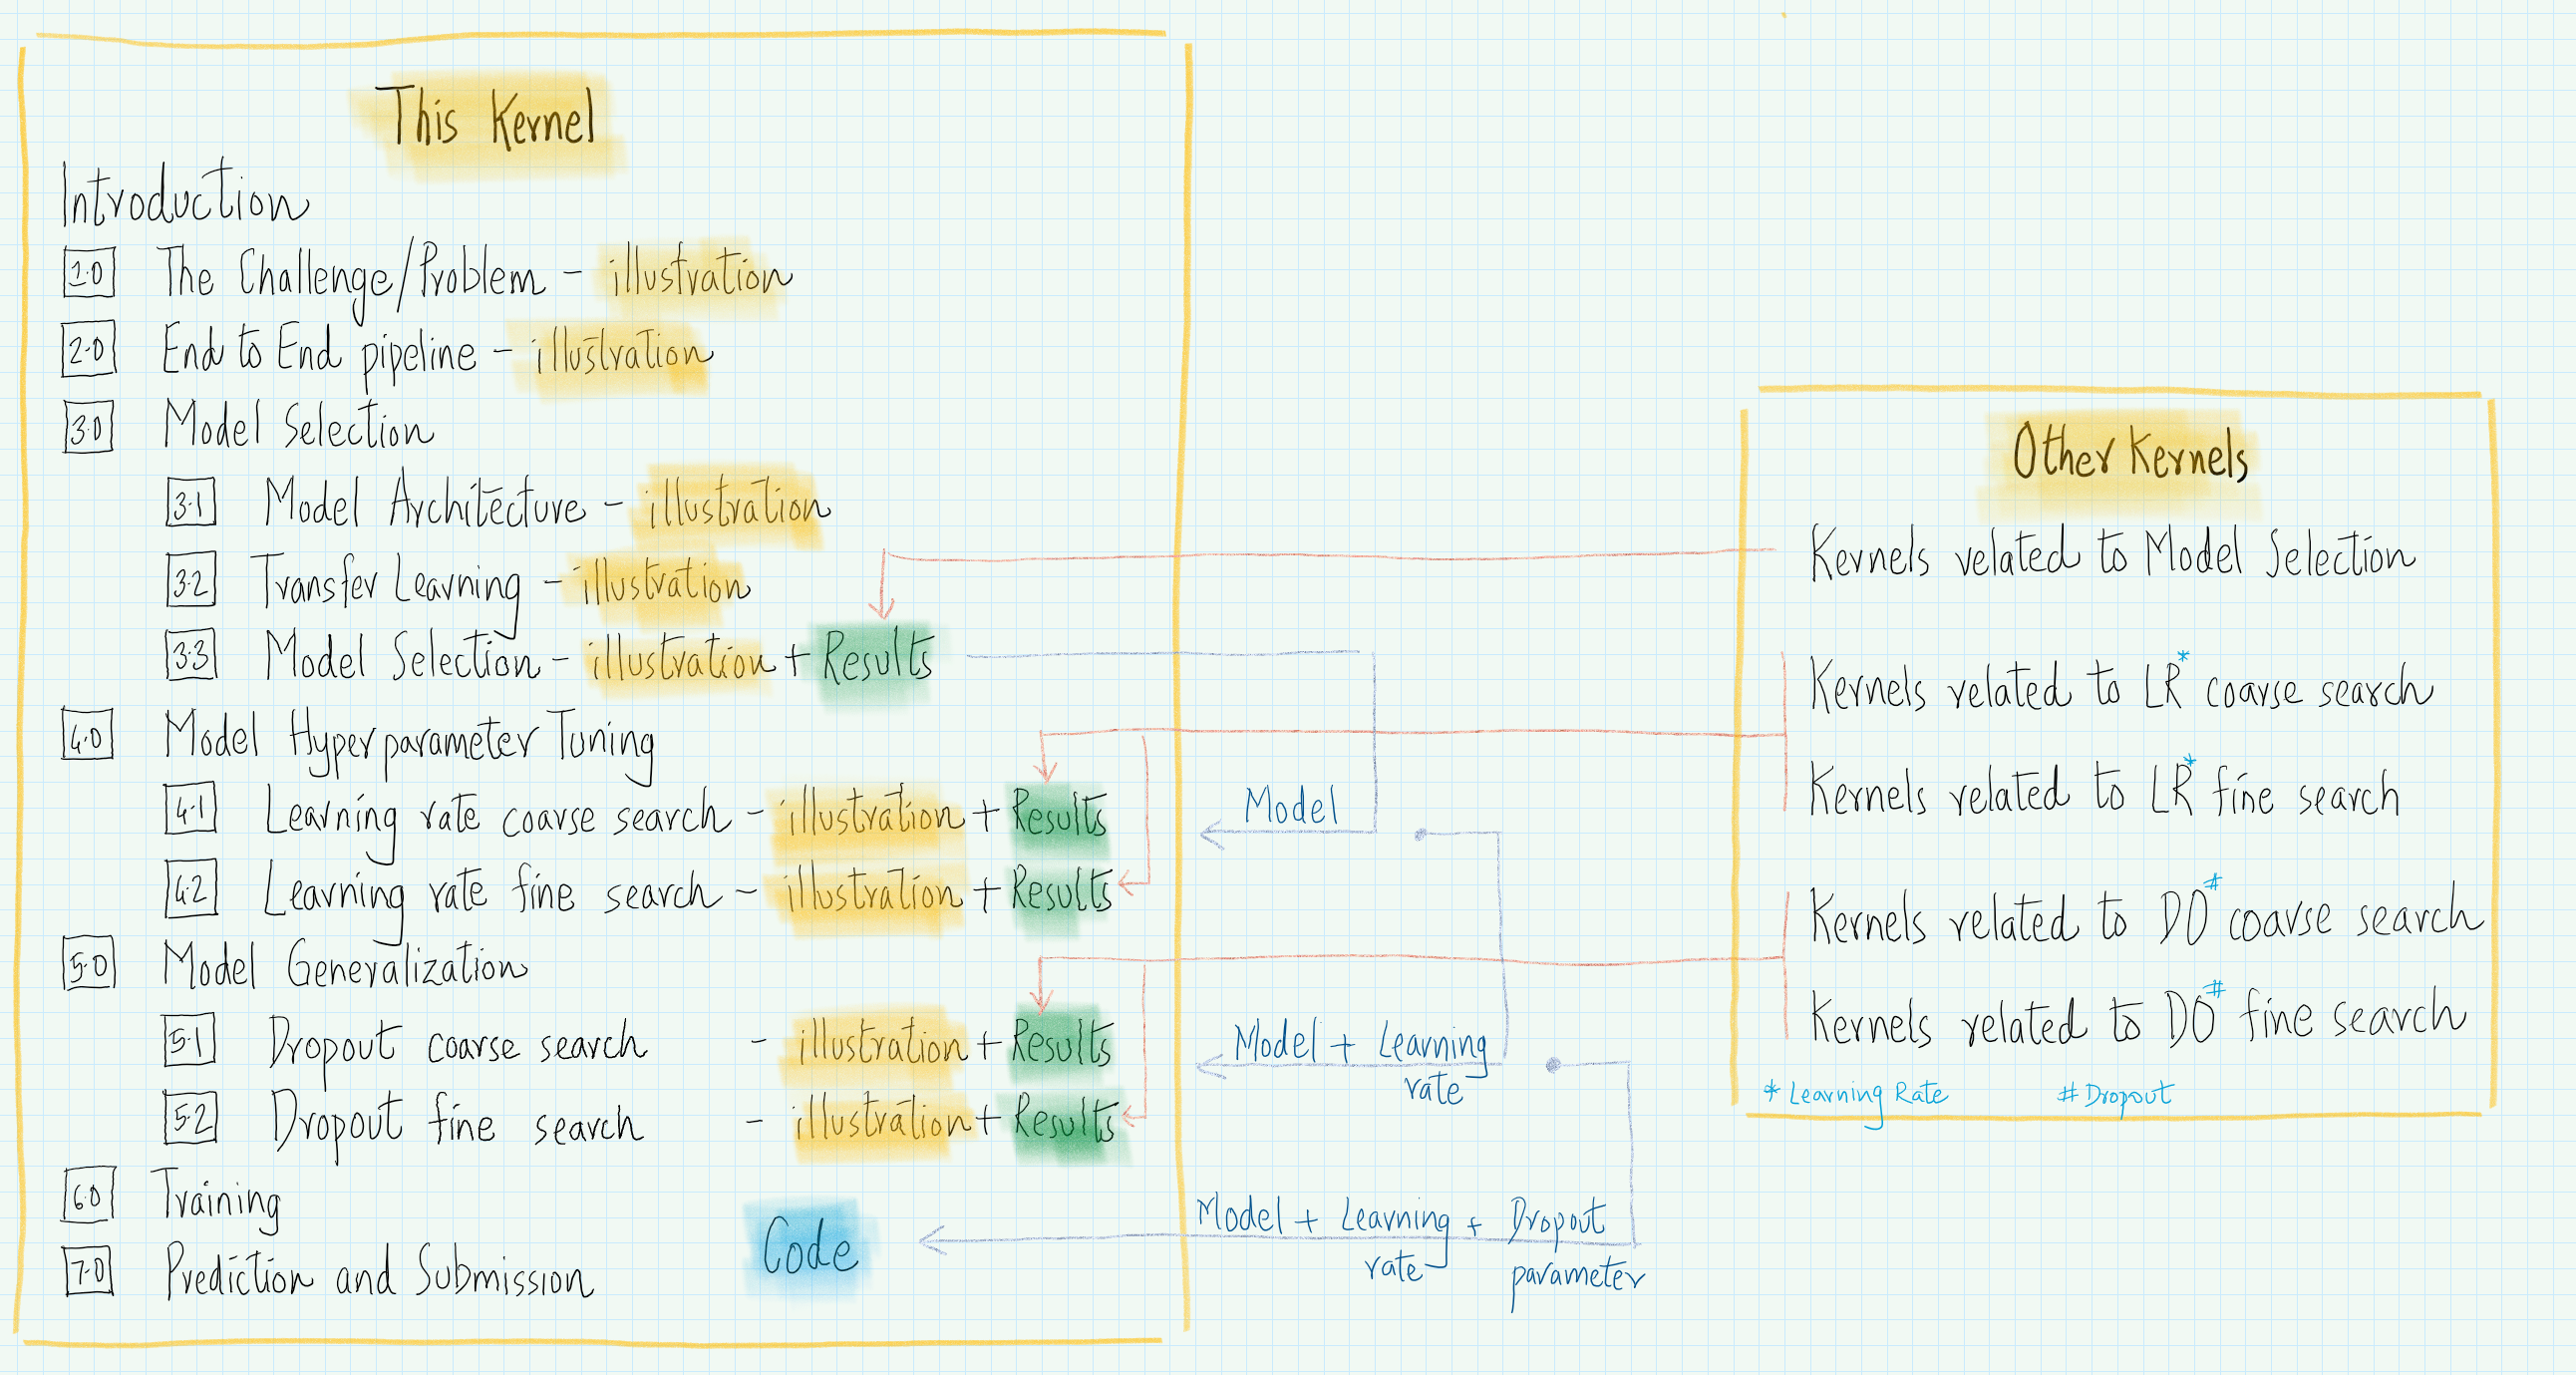 This Kernel
Introduction
1.0 The Challenge/Problem - illustration
2.0 End to End pipeline - illustration
3.0 Model Selection
3.1 Model Architecture - illustration
3.2 Transfer Learning - illustration
3.3 Model Selection - illustration + Results
4.0 Model Hyperparameter Tuning
4.1 Learning rate coarse search - illustration + Results
4.2 Learning rate fine search - illustration + Results
5.0 Model Generalization
5.1 Dropout coarse search - illustration + Results
5.2 Dropout fine search - illustration + Results
6.0 Training
Code
7.0 Prediction and Submission
Model
Model + Learning
rate
Model + Learning + Dropout
rate parameter
Other Kernels
Kernels related to Model Selection
Kernels related to LR* coarse search
Kernels related to LR* fine search
Kernels related to DO# coarse search
Kernels related to DO# fine search
* Learning Rate # Dropout